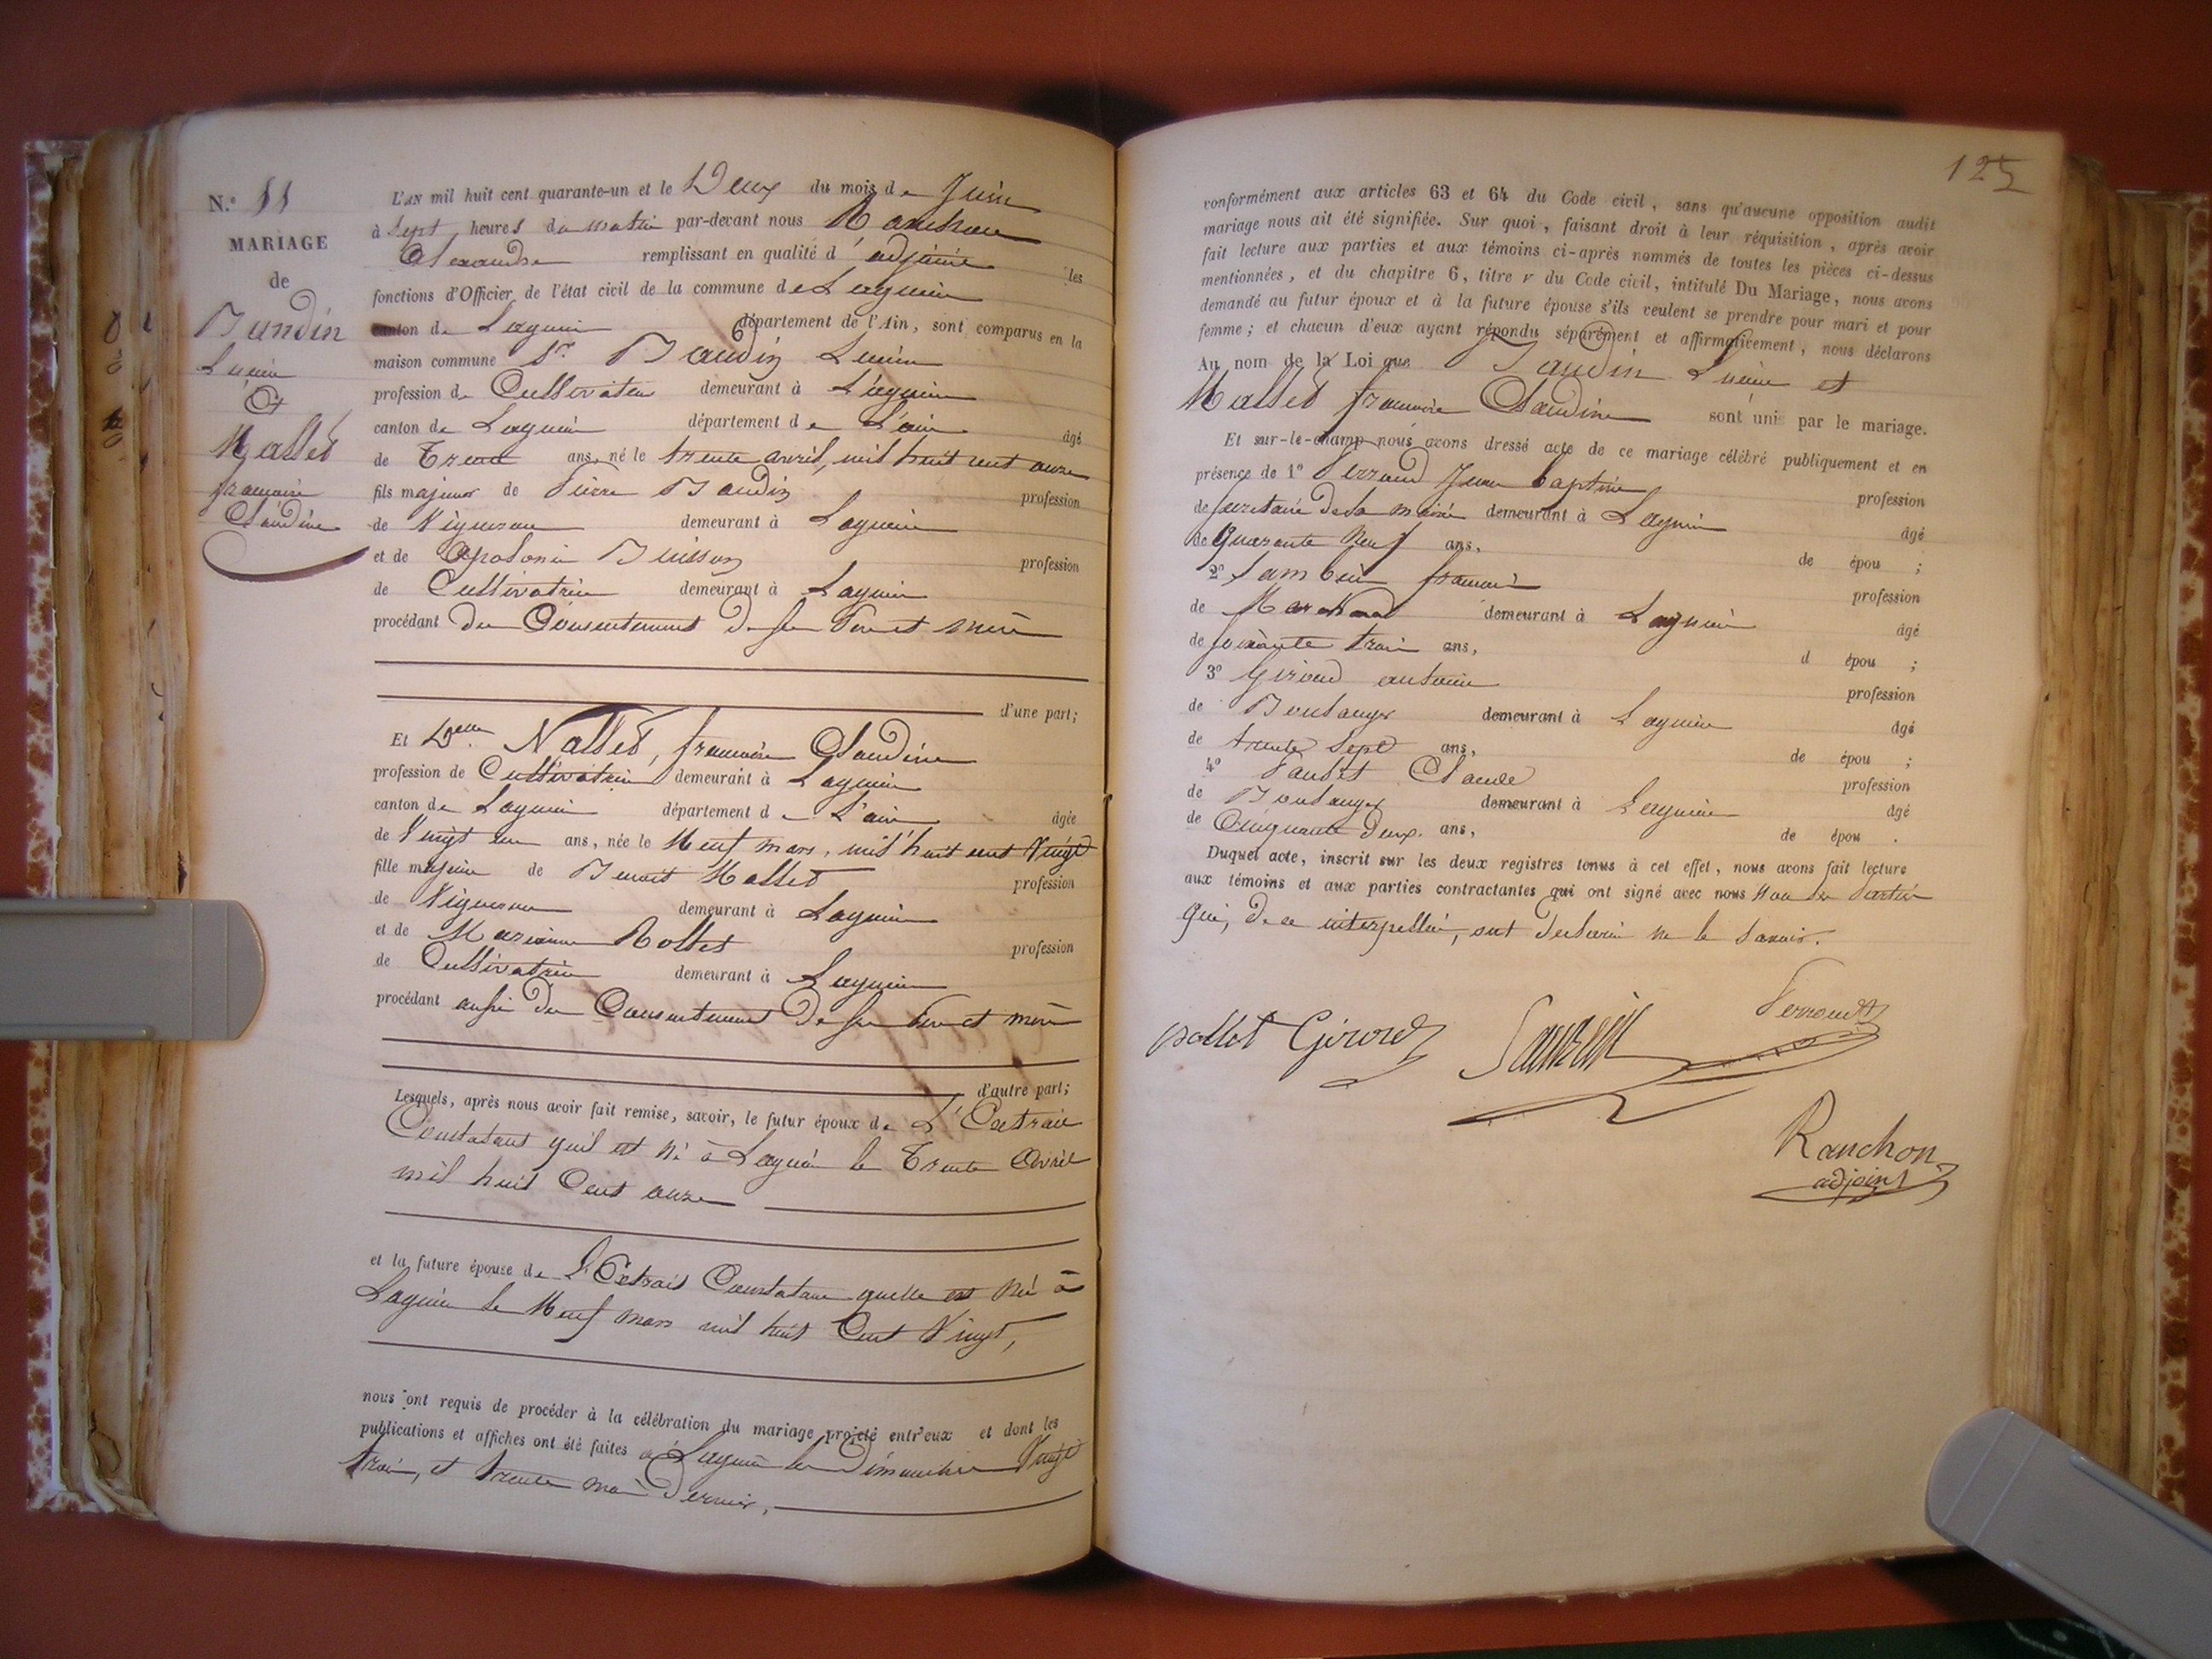 N.º 11
MARIAGE
de
Baudin
Lucien
Et
Mallet
françoise
Claudine
L'AN mil huit cent quarante-un et le Deux du mois de Juin
à Sept heures du matin par-devant nous Ranchon
Alexandre remplissant en qualité d'adjoint les
fonctions d'Officier de l'état civil de la commune de Lagnieu
canton de Lagnieu département de l'Ain, sont comparus en la
maison commune Sr. Baudin Lucien
profession de Cultivateur demeurant à Lagnieu
canton de Lagnieu département de L'ain âgé
de Trente ans, né le trente avril, mil huit cent onze
fils majeur de Pierre Baudin profession
de Vigneron demeurant à Lagnieu
et de Apolonie Buisson profession
de Cultivatrice demeurant à Lagnieu
procédant du Consentement de ses Père et mère
d'une part;
Et Delle. Mallet, françoise Claudine
profession de Cultivatrice demeurant à Lagnieu
canton de Lagnieu département de L'ain âgée
de Vingt un ans, née le Neuf mars, mil huit cent Vingt
fille majeure de Benoit Mallet profession
de Vigneron demeurant à Lagnieu
et de Marianne Rollet profession
de Cultivatrice demeurant à Lagnieu
procédant aussi du Consentement de ses Père et mère
d'autre part;
Lesquels, après nous avoir fait remise, savoir, le futur époux de L'Extrait
Constatant quil est né à Lagnieu le Trente Avril
mil huit Cent onze
et la future épouse de L'Extrait Constatant quelle est née à
Lagnieu le Neuf mars mil huit Cent Vingt,
nous ont requis de procéder à la célébration du mariage projeté entr'eux et dont les
publications et affiches ont été faites à Lagnieu les Dimanches Vingt
trois, et trente mai dernier,
125
conformément aux articles 63 et 64 du Code civil, sans qu'aucune opposition audit
mariage nous ait été signifiée. Sur quoi, faisant droit à leur réquisition, après avoir
fait lecture aux parties et aux témoins ci-après nommés de toutes les pièces ci-dessus
mentionnées, et du chapitre 6, titre v du Code civil, intitulé Du Mariage, nous avons
demandé au futur époux et à la future épouse s'ils veulent se prendre pour mari et pour
femme; et chacun d'eux ayant répondu séparément et affirmativement, nous déclarons
Au nom de la Loi que Baudin Lucien et
Mallet françoise Claudine sont unis par le mariage.
Et sur-le-champ nous avons dressé acte de ce mariage célébré publiquement et en
présence de 1º Perroud Jean Baptiste profession
de Secrétaire de la mairie demeurant à Lagnieu âgé
de Quarante Neuf ans, de épou ;
2º françois profession
de Marchand demeurant à Lagnieu âgé
de soixante trois ans, d épou ;
3º Giroud antoine profession
de Boulanger demeurant à Lagnieu âgé
de trente Sept ans, de épou ;
4º Claude profession
de Boulanger demeurant à Lagnieu âgé
de Cinquante deux ans, de épou .
Duquel acte, inscrit sur les deux registres tenus à cet effet, nous avons fait lecture
aux témoins et aux parties contractantes qui ont signé avec nous Non les Parties
qui, de ce interpellés, ont déclaré ne le savoir.
Girord
Perroud
Ranchon
adjoint